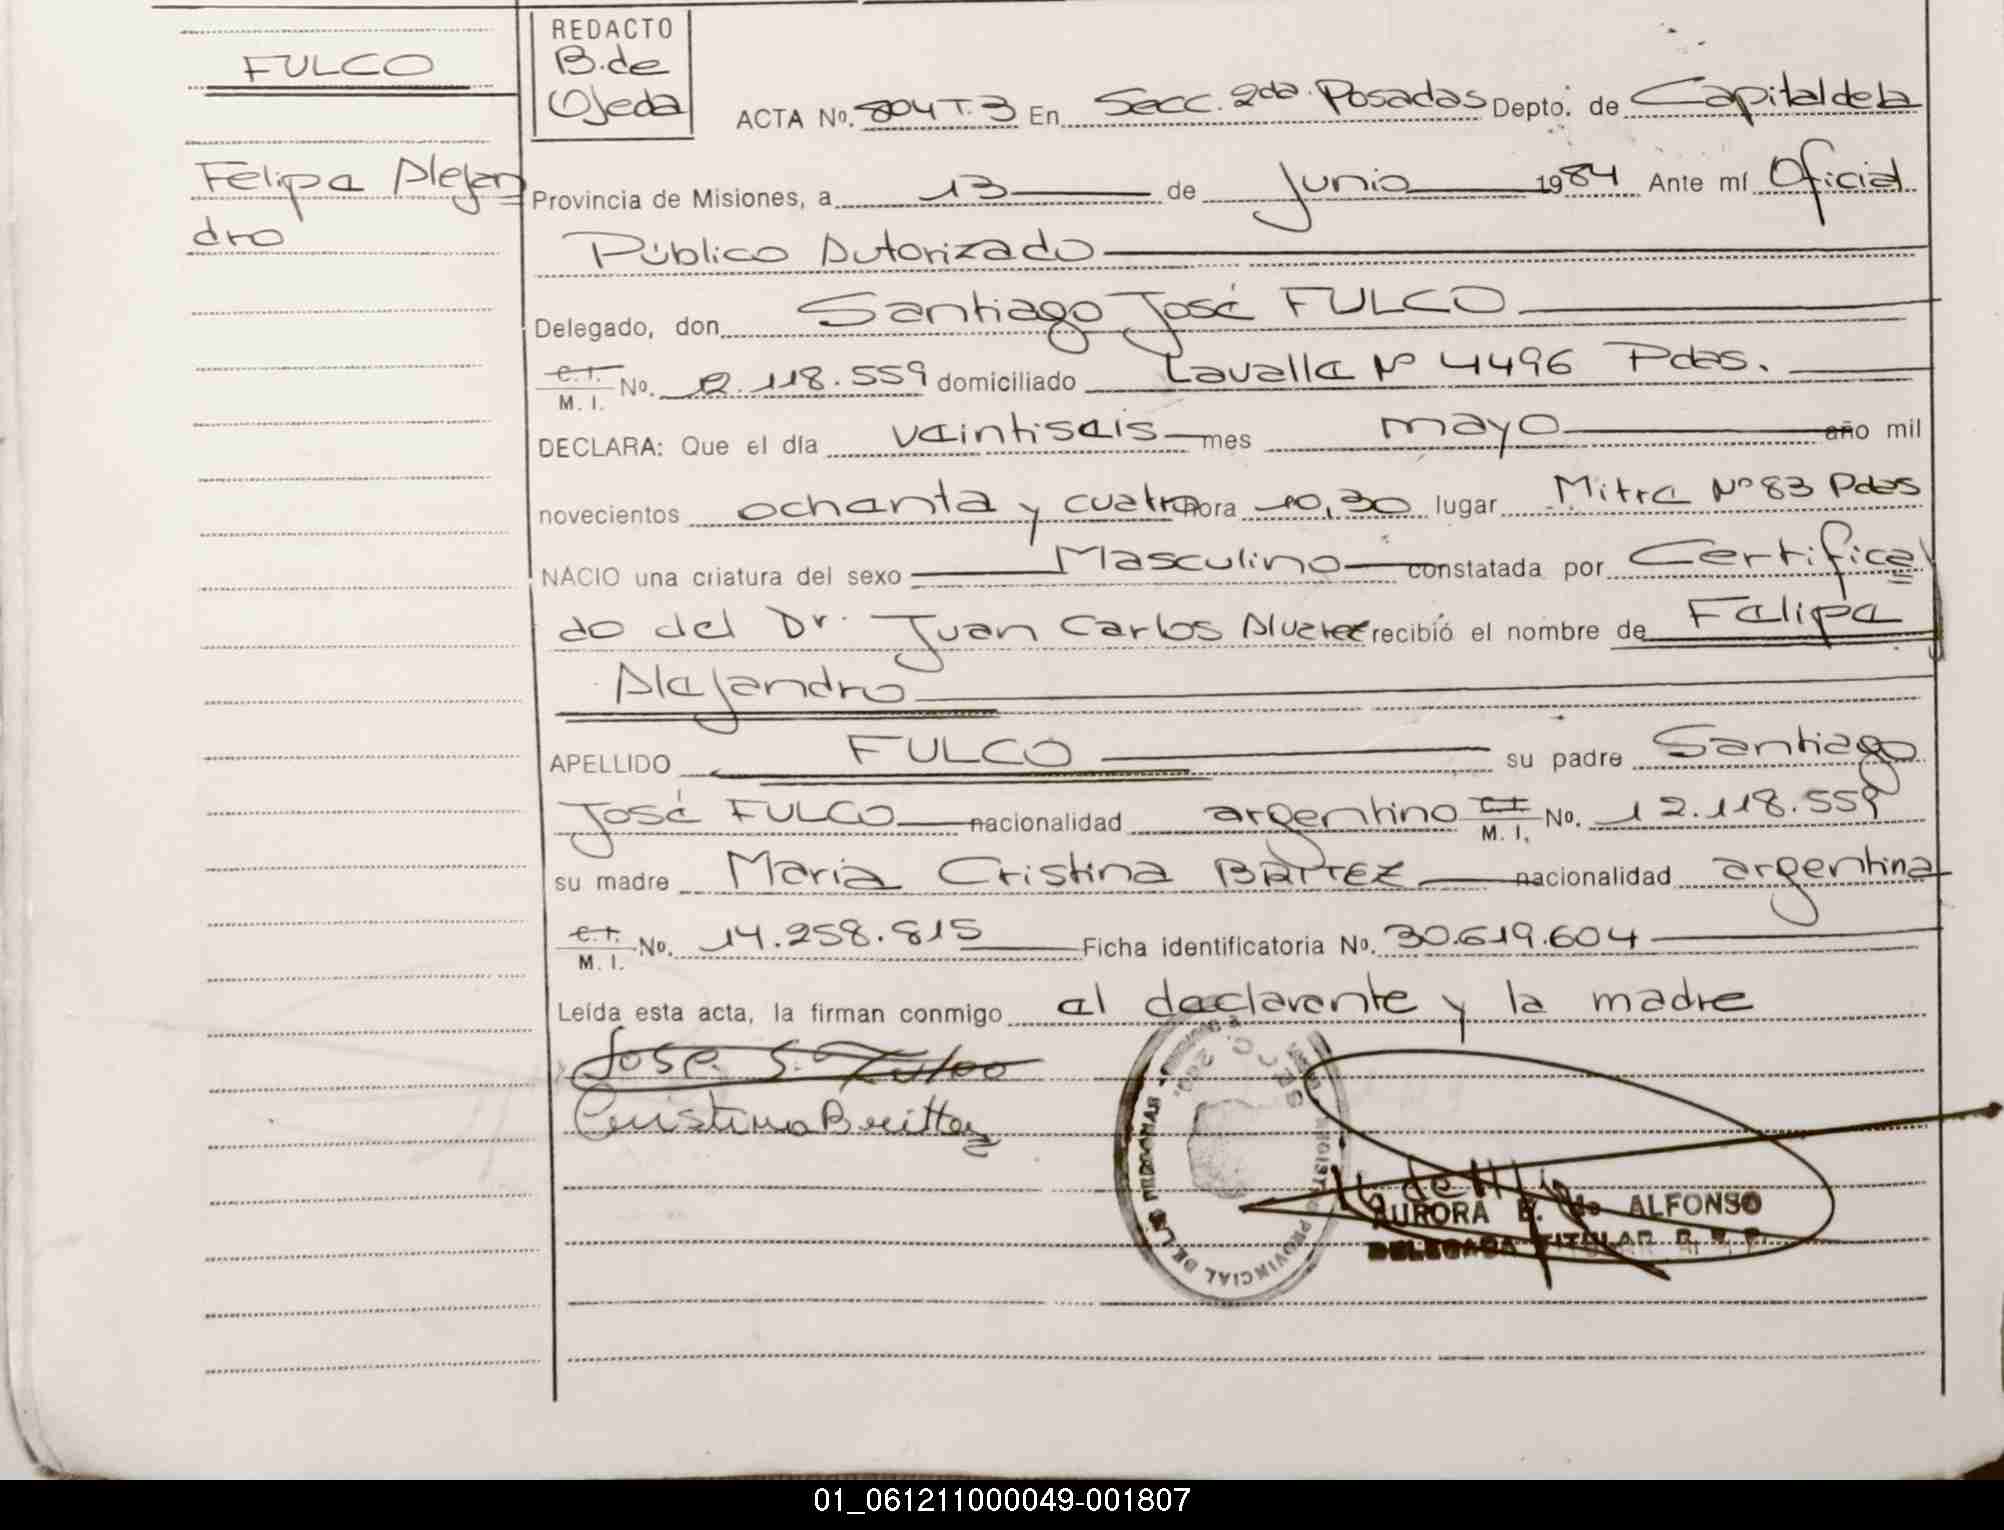 FULCO
Felipe Alejan
dro
REDACTO
B. de
Ojeda
ACTA No. 804 T. 3 En Secc. 2da. Posadas Depto. de Capital de la
Provincia de Misiones, a 13 de Junio 1984 Ante mí Oficial
Público Autorizado
Delegado, don Santiago José FULCO
C.I. M. I. No. 12.118.559 domiciliado Lavalle Nº 4496 Pdas.
DECLARA: Que el día veintiseis mes mayo año mil
novecientos ochenta y cuatro hora 10,30 lugar Mitre Nº 83 Pdas
NACIO una criatura del sexo Masculino constatada por Certifica
do del Dr. Juan Carlos Alvarez recibió el nombre de Felipe
Alejandro
APELLIDO FULCO su padre Santiago
José FULCO nacionalidad argentino C.I. M. I. No. 12.118.559
su madre Maria Cristina BRITEZ nacionalidad argentina
C.I. M. I. No. 14.258.815 Ficha identificatoria No. 30.619.604
Leída esta acta, la firman conmigo el declarante y la madre
Jose S. Fulco
Cristina Brittez
REGISTRO PROVINCIAL DE LAS PERSONAS
AURORA B. de ALFONSO
DELEGADA TITULAR R. P. P.
01_061211000049-001807